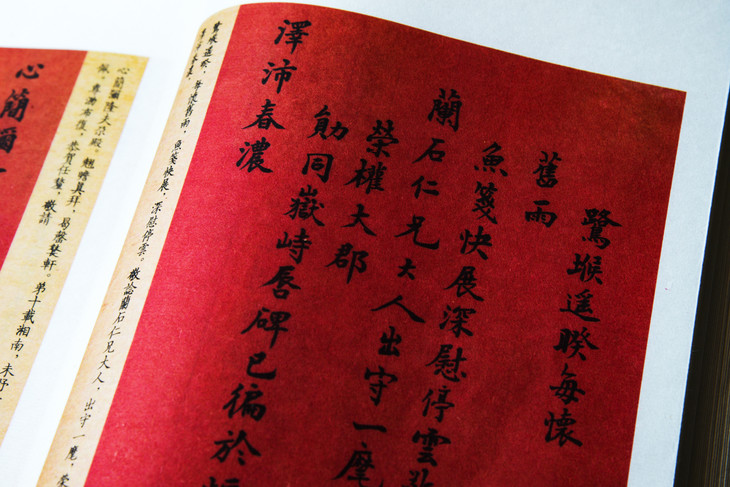 鷺堠遥睽每懷
舊雨
魚箋快展深慰停雲敬
蘭石仁兄大人出守一麾
榮權大郡
勛同嶽峙唇碑已徧於
澤沛春濃
鷺堠遥睽，每懷舊雨，魚箋快展，深慰停雲。敬諗蘭石仁兄大人，出守一麾，榮
心簡爾隆大榮殿 翹 具拜，曷罄裝軒。第十載湘南，未
佩，專泐布復，恭賀任釐，敬請
心簡爾